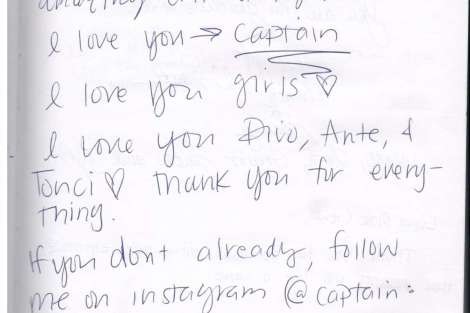 I love you → captain
I love you girls ♡
I love you Divo, Ante, &
Tonci ♡ thank you for every-
thing.
If you don't already, follow
me on instagram @captain: